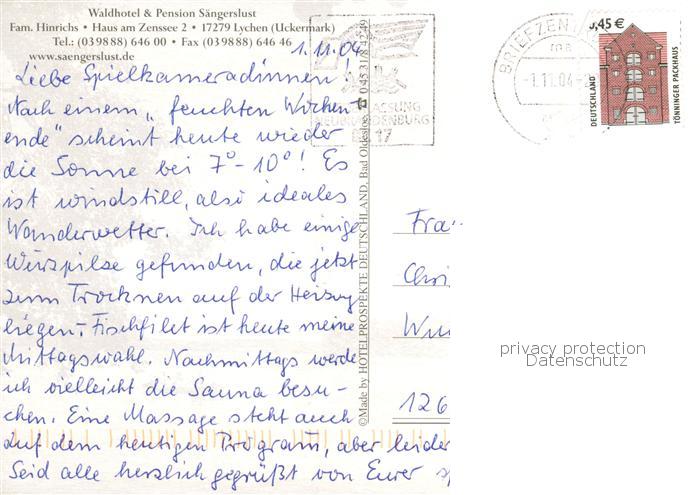 Waldhotel & Pension Sängerslust
Fam. Hinrichs • Haus am Zenssee 2 • 17279 Lychen (Uckermark)
Tel.: (039888) 646 00 • Fax (039888) 646 46
www.saengerslust.de
1.11.04
Liebe Spielkameradinnen!
Nach einem „feuchten Wochen-
ende" scheint heute wieder
die Sonne bei 7°-10°! Es
ist windstill, also ideales
Wanderwetter. Ich habe einige
Würzpilze gefunden, die jetzt
zum Trocknen auf der Heizung
liegen. Fischfilet ist heute meine
Mittagswahl. Nachmittags werde
ich vielleicht die Sauna besu-
chen. Eine Massage steht auch
auf dem heutigen Program, aber leider
Seid alle herzlich gegrüßt von Eurer
©Made by HOTELPROSPEKTE DEUTSCHLAND, Bad Oldesloe ☎ 0 45 31/8 42 49
NEUBRANDENBURG
17
BRIEFZEN
-1.11.04-
0,45 €
DEUTSCHLAND
TÖNNINGER PACKHAUS
Frau
Chri
Wu
126
privacy protection
Datenschutz